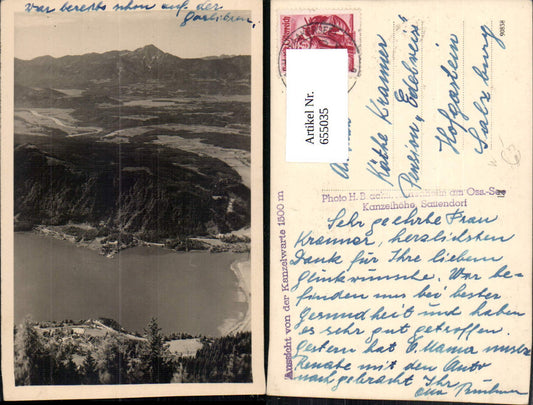 war bereits schon auf der
Gerlitzen.
Artikel Nr.
655035
Käthe Kramer
Pension „Edelweis"
Hofgastein
Salzburg
90838
Photo H. B
Oss.-See
Kanzelhöhe, Sattendorf
Aussicht von der Kanzelwarte 1500 m
Sehr geehrte Frau
Krammer, herzlichsten
Dank für Ihre lieben
Glückwünsche. War be-
finden uns bei bester
Gesundheit und haben
es sehr gut getroffen.
Gestern hat O. Mama unsere
Renate mit den Auto
nachgebracht Ihr